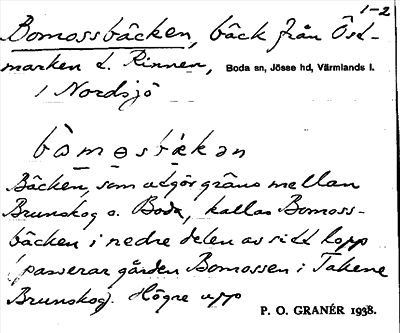 1-2
Bomossbäcken, bäck från Öst-
marken t. Rinnen, Boda sn, Jösse hd, Värmlands l.
i Nordsjö
bòmosbäkən
Bäcken, som utgör gräns mellan
Brunskog o. Boda, kallas Bomoss-
bäcken i nedre delen av sitt lopp
(passerar gården Bomossen i Takene
Brunskog). Högre upp
P. O. GRANÉR 1938.